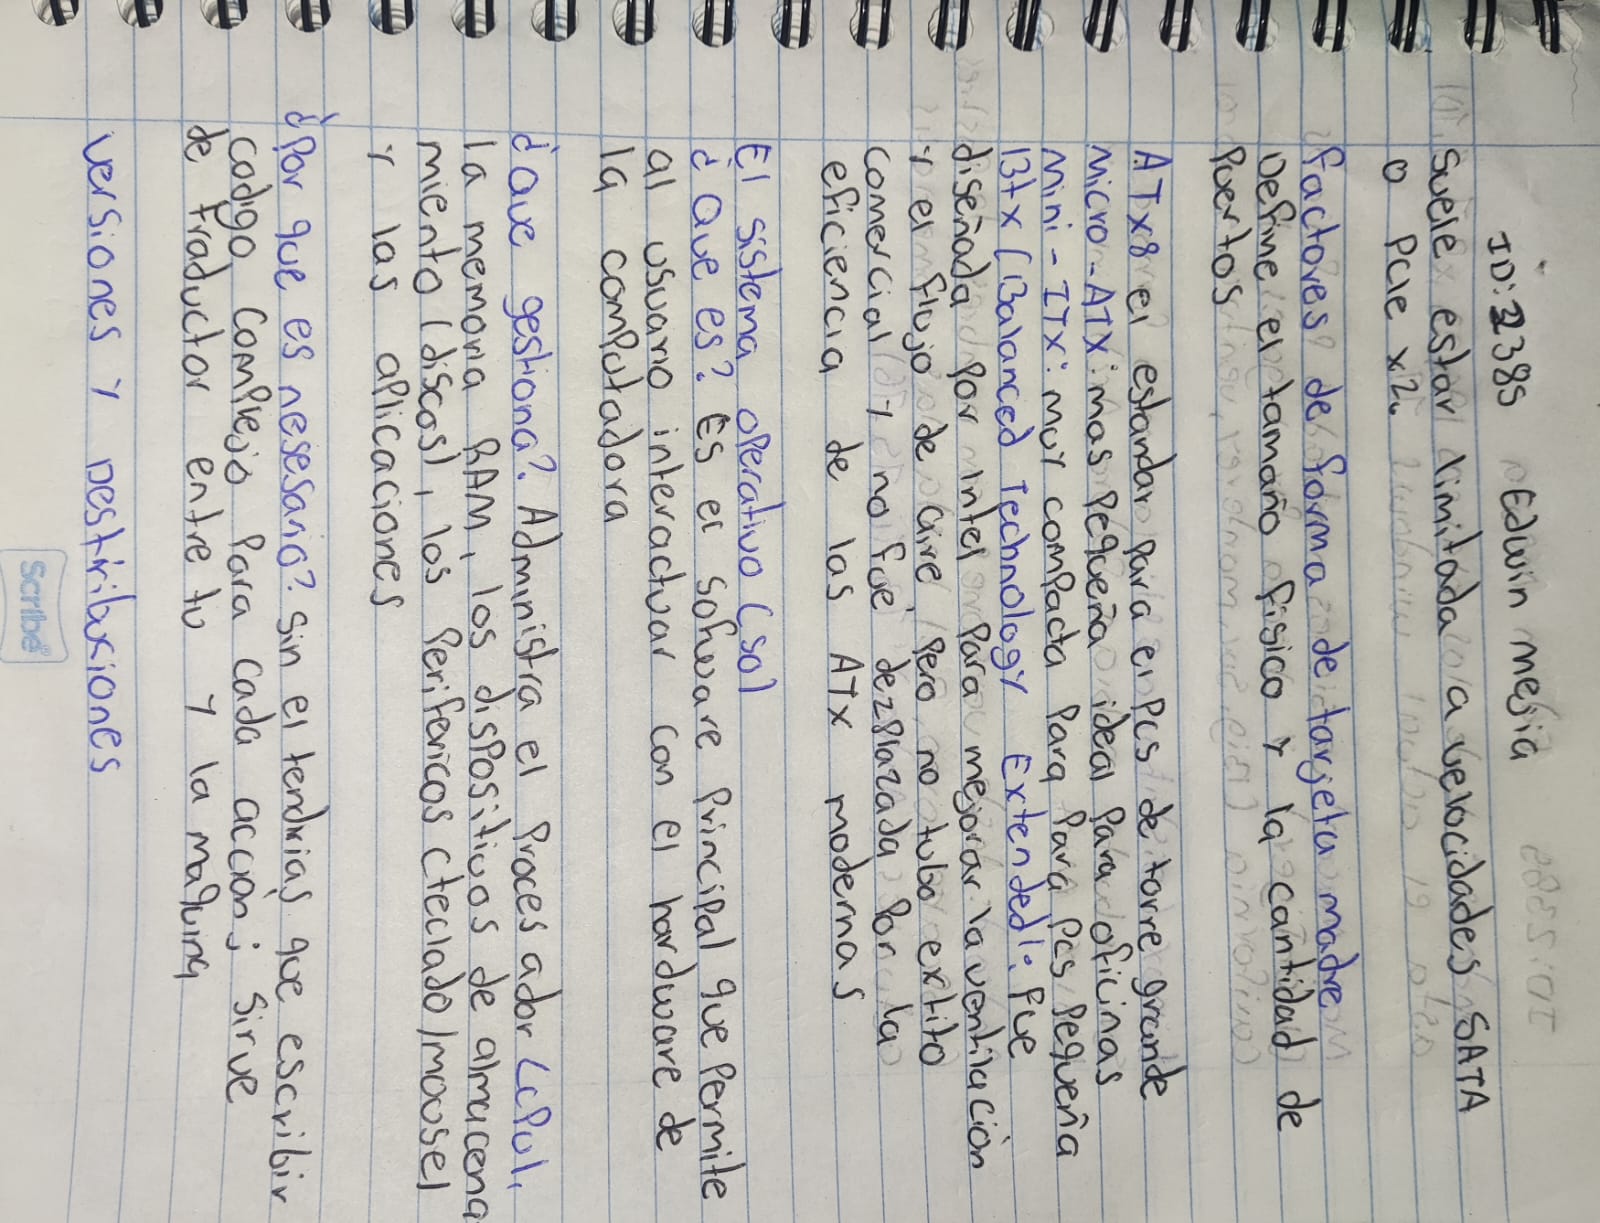 ID: 2385 Edwin mejia
Suele estar limitada a velocidades SATA
o PCIe x2.
factores de forma de tarjeta madre
Define el tamaño fisico y la cantidad de
Puertos
ATX8 el estandar para el Pcs de torre grande
Micro-ATX: mas Pequeña ideal Para oficinas
Mini-ITX: muy compacta Para Para Pcs Pequeña
Btx (Balanced Technology Extended): Fue
diseñada Por intel Para mejorar la ventilación
y el flujo de aire, Pero no tubo extito
comercial y no fue dezplazada Por la
eficiencia de las ATX modernas
El sistema operativo (so)
¿Que es? Es el sofware Principal que Permite
al usuario interactuar con el hardware de
la computadora
¿Que gestiona? Administra el Procesador (cPu),
la memoria RAM, los dispositivos de almacena
miento (discos), los Perifericos (teclado/moose)
y las aplicaciones
¿Por que es nesesario? Sin el tendrias que escribir
codigo complejo Para cada accion; sirve
de traductor entre tu y la maquina
versiones y Destribuxiones
scribe